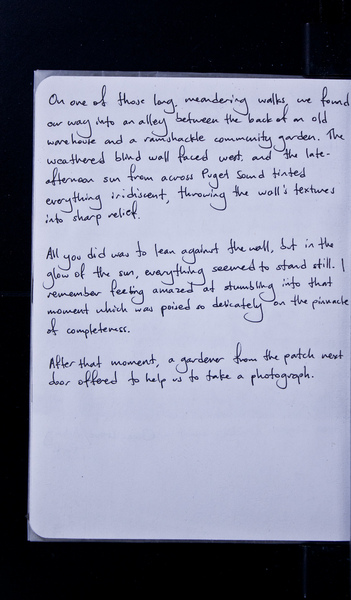 On one of those long, meandering walks, we found
our way into an alley between the back of an old
warehouse and a ramshackle community garden. The
weathered blind wall faced west, and the late-
afternoon sun from across Puget Sound tinted
everything iridiscent, throwing the wall's textures
into sharp relief.
All you did was to lean against the wall, but in the
glow of the sun, everything seemed to stand still. I
remember feeling amazed at stumbling into that
moment which was poised so delicately on the pinnacle
of completeness.
After that moment, a gardener from the patch next
door offered to help us to take a photograph.